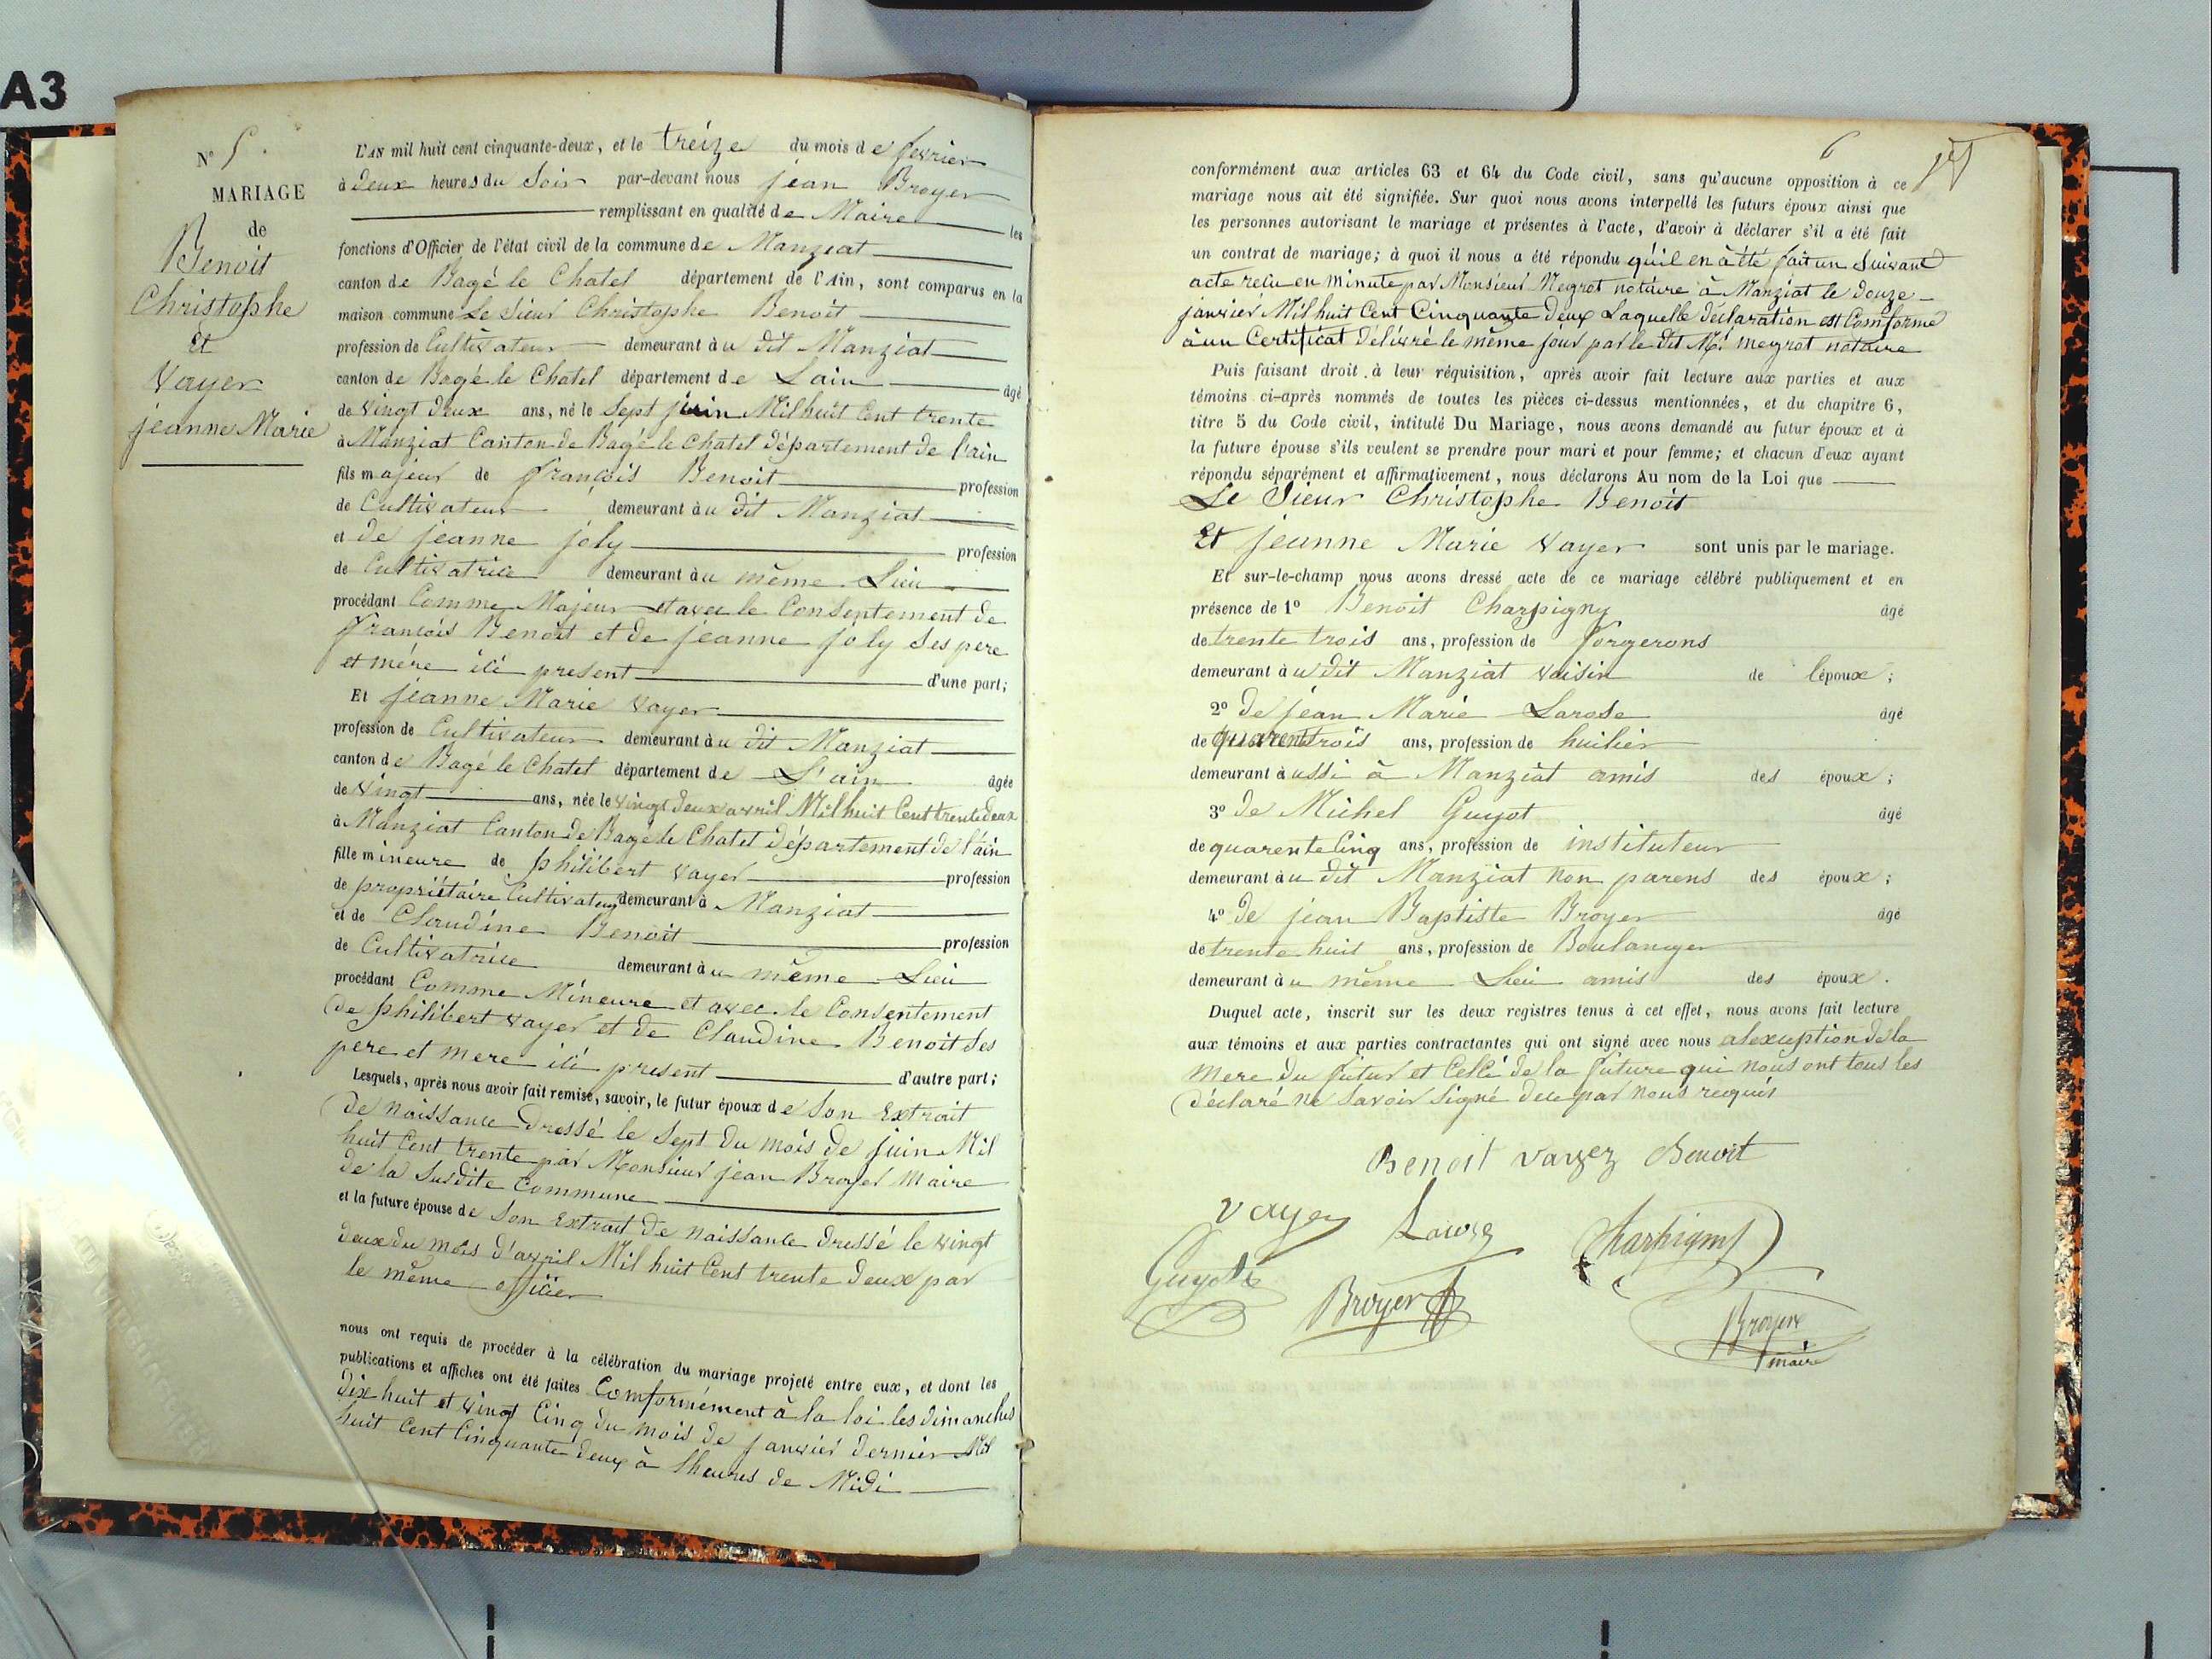 A3
N° 5.
MARIAGE
de
Benoit
Christophe
et
Vayer
jeanne Marie
L'AN mil huit cent cinquante-deux, et le treize du mois de fevrier
à deux heures du Soir par-devant nous jean Broyer
remplissant en qualité de Maire les
fonctions d'Officier de l'état civil de la commune de Manziat
canton de Bagé le Chatel département de l'Ain, sont comparus en la
maison commune Le Sieur Christophe Benoit
profession de Cultivateur demeurant àu dit Manziat
canton de Bagé le Chatel département de Lain âgé
de vingt deux ans, né le Sept juin Mil huit Cent trente
à Manziat Canton de Bagé le Chatel département de l'ain
fils majeur de françois Benoit profession
de Cultivateur demeurant àu dit Manziat
et de jeanne joly profession
de Cultivatrice demeurant àu même Lieu
procédant Comme Majeur et avec le Consentement de
françois Benoit et de jeanne joly Ses pere
et mére ici present d'une part;
Et jeanne Marie Vayer
profession de Cultivateur demeurant àu dit Manziat
canton de Bagé le Chatel département de L'ain âgée
de vingt ans, née le vingt deux avril Mil huit Cent trente deux
à Manziat Canton de Bagé le Chatel département de l'ain
fille mineure de philibert Vayer profession
de propriétaire Cultivateur demeurant à Manziat
et de Claudine Benoit profession
de Cultivatrice demeurant àu même Lieu
procédant Comme Mineure et avec le Consentement
de philibert Vayer et de Claudine Benoit Ses
pere et mere ici present d'autre part;
Lesquels, après nous avoir fait remise, savoir, le futur époux de Son Extrait
de naissance dressé le Sept du mois de juin Mil
huit Cent trente par Monsieur jean Broyer Maire
de la Susdite Commune
et la future épouse de Son Extrait de naissance dressé le vingt
deux du mois d'avril Mil huit Cent trente deux par
le même officier
nous ont requis de procéder à la célébration du mariage projeté entre eux, et dont les
publications et affiches ont été faites Comformément à la loi les dimanches
dix huit et vingt Cinq du mois de janvier dernier Mil
huit Cent Cinquante deux à lheures de Midi
6
conformément aux articles 63 et 64 du Code civil, sans qu'aucune opposition à ce
mariage nous ait été signifiée. Sur quoi nous avons interpellé les futurs époux ainsi que
les personnes autorisant le mariage et présentes à l'acte, d'avoir à déclarer s'il a été fait
un contrat de mariage; à quoi il nous a été répondu qu'il en à été fait un Suivant
acte reçu en minute par Monsieur Meyrot notaire à Manziat le douze
janvier Mil huit Cent Cinquante deux Laquelle déclaration est Comforme
à un Certificat délivré le même jour par le dit Mr meyrot notaire
Puis faisant droit à leur réquisition, après avoir fait lecture aux parties et aux
témoins ci-après nommés de toutes les pièces ci-dessus mentionnées, et du chapitre 6,
titre 5 du Code civil, intitulé Du Mariage, nous avons demandé au futur époux et à
la future épouse s'ils veulent se prendre pour mari et pour femme; et chacun d'eux ayant
répondu séparément et affirmativement, nous déclarons Au nom de la Loi que
Le Sieur Christophe Benoit
Et jeanne Marie Vayer sont unis par le mariage.
Et sur-le-champ nous avons dressé acte de ce mariage célébré publiquement et en
présence de 1° Benoit Charpigny âgé
de trente trois ans, profession de forgerons
demeurant àu dit Manziat voisin de lépoux;
2° de jean Marie Larose âgé
de quarentrois ans, profession de huilier
demeurant àussi à Manziat amis des époux;
3° de Michel Guyot âgé
de quarente Cinq ans, profession de instituteur
demeurant àu dit Manziat non parens des époux;
4° de jean Baptiste Broyer âgé
de trente huit ans, profession de Boulanger
demeurant àu même Lieu amis des époux.
Duquel acte, inscrit sur les deux registres tenus à cet effet, nous avons fait lecture
aux témoins et aux parties contractantes qui ont signé avec nous alexception de la
mere du futur et Celle de la future qui nous ont tous les
déclaré ne Savoir Signé de ce par nous requis
Benoit vayez Benoit
vayer Larose Charpigny
Guyot Broyer Broyer
maire